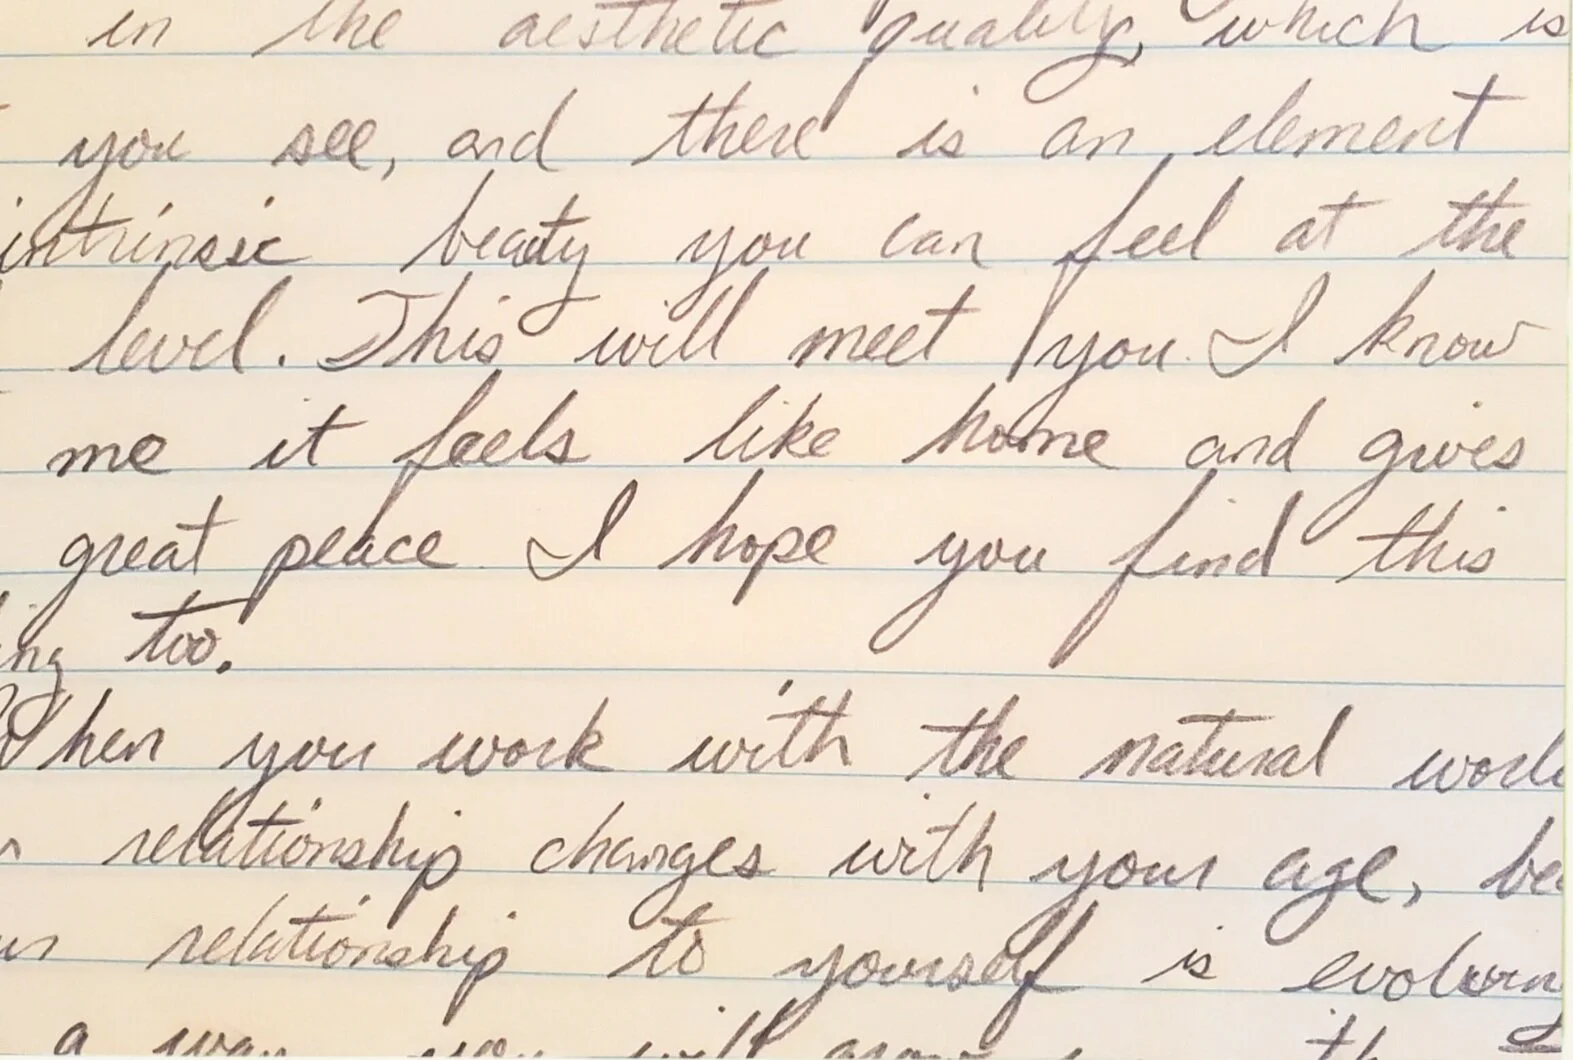 in the aesthetic quality, which is
you see, and there is an element
intrinsic beauty you can feel at the
level. This will meet you. I know
me it feels like home and gives
great peace. I hope you find this
ing too.
When you work with the natural
relationship changes with your age,
relationship to yourself is
a way you will grow